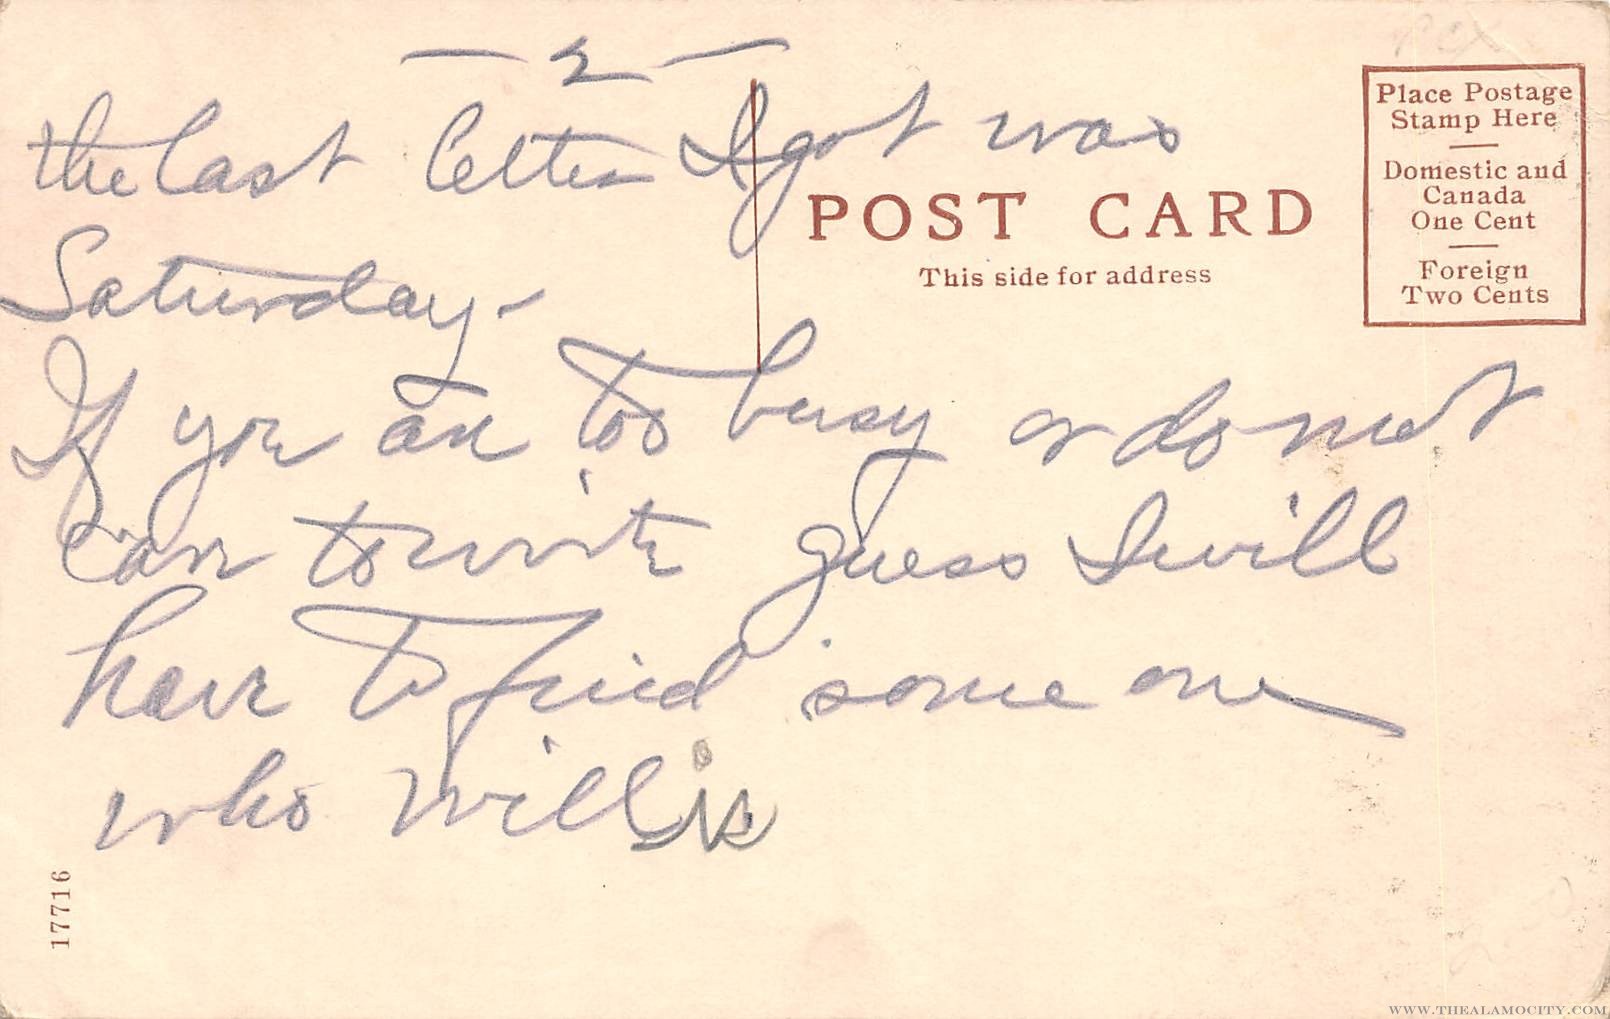 — 2 —
the last letter I got was
Saturday -
If you are too busy or do not
care to write guess I will
have to find some one
who will
POST CARD
This side for address
Place Postage
Stamp Here
Domestic and
Canada
One Cent
Foreign
Two Cents
17716
WWW.THEALAMOCITY.COM